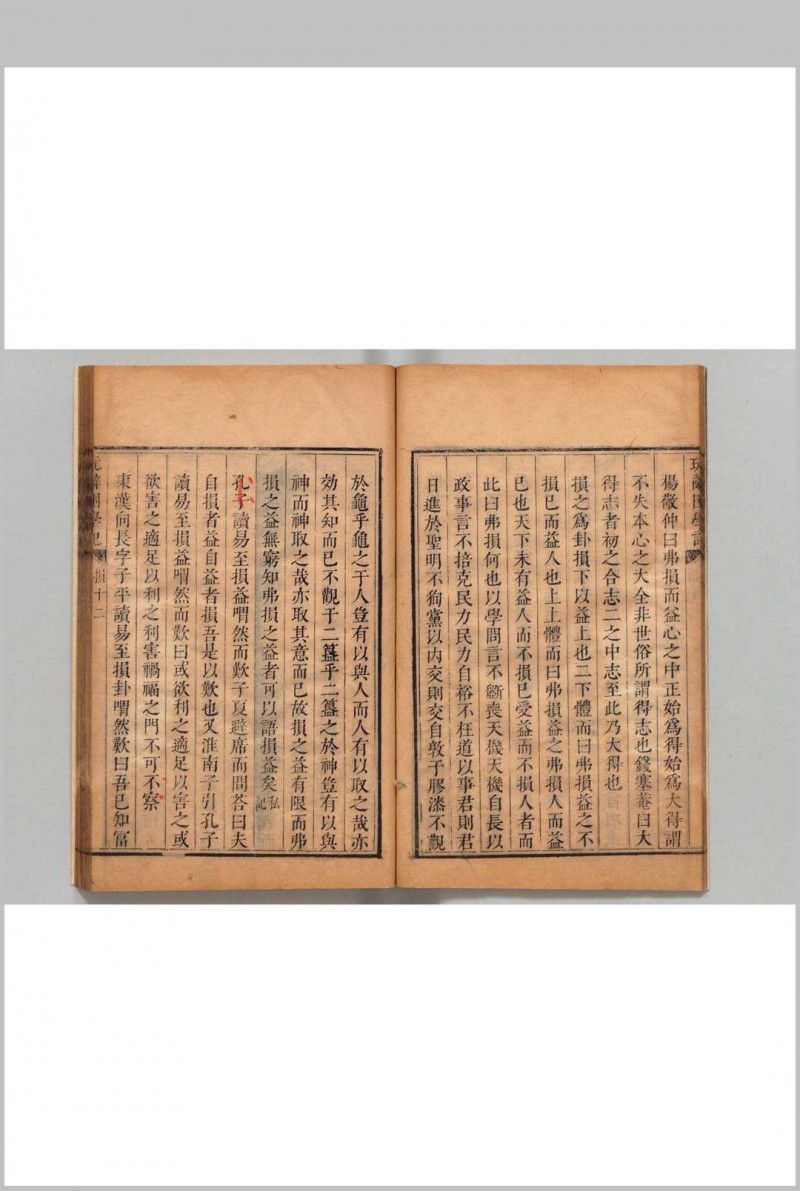 楊敬仲曰弗損而益心之中正始爲得始爲大得謂
不失本心之大全非世俗所謂得志也錢塞菴曰大
得志者初之合志二之中志至此乃大得也
損之爲卦損下以益上也二下體而曰弗損益之不
損已而益人也上上體而曰弗損益之弗損人而益
已也天下未有益人而不損已受益而不損人者而
此曰弗損何也以學問言不斵喪天機天機自長以
政事言不掊克民力民力自裕不枉道以事君則君
日進於聖明不狥黨以內交則交自敦于膠漆不觀
於龜乎龜之于人豈有以與人而人有以取之哉亦
効其知而已不觀于二簋乎二簋之於神豈有以與
神而神取之哉亦取其意而已故損之益有限而弗
損之益無窮知弗損之益者可以語損益矣私記
孔子讀易至損益喟然而歎子夏避席而問答曰夫
自損者益自益者損吾是以歎也又淮南子引孔子
讀易至損益喟然而歎曰或欲利之適足以害之或
欲害之適足以利之利害禍福之門不可不察
東漢向長字子平讀易至損卦喟然歎曰吾已知富
損十二